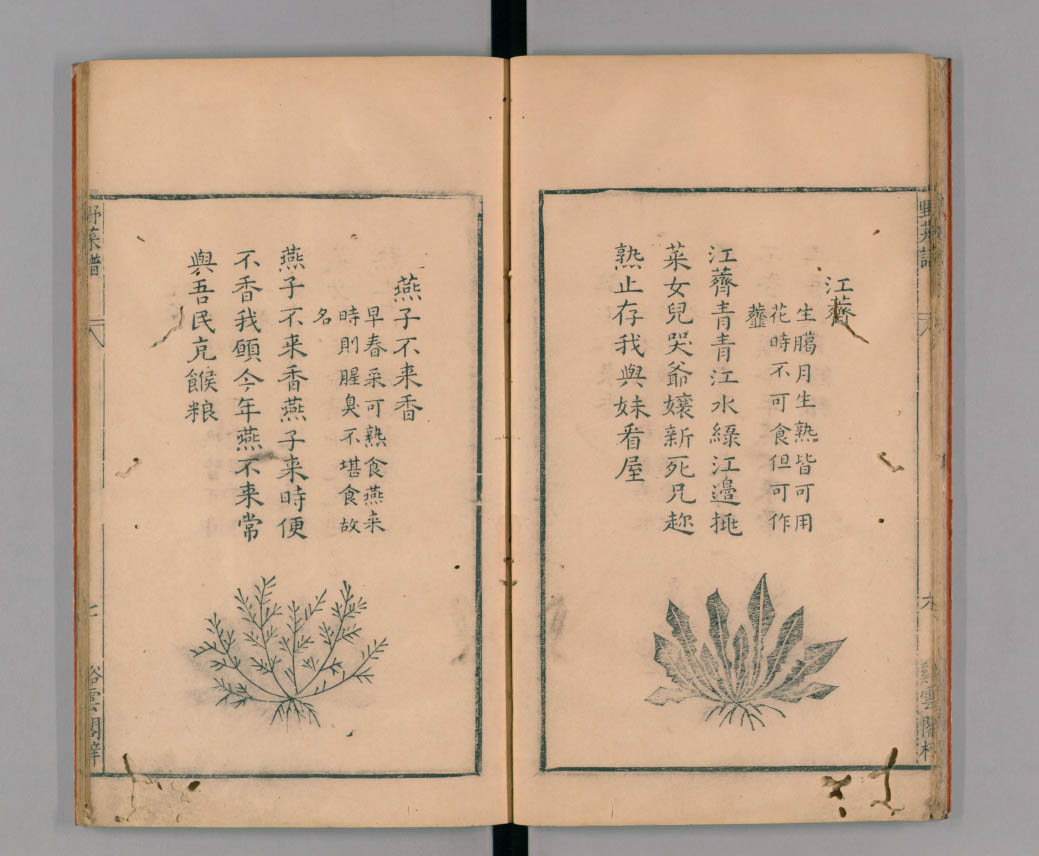 江薺
生臈月生熟皆可用
花時不可食但可作
虀
江薺青青江水綠江邉挑
菜女兒哭爺孃新死兄趂
熟止存我與妹看屋
野菜譜
燕子不来香
早春采可熟食燕来
時則腥臭不堪食故
名
燕子不来香燕子来時便
不香我願今年燕不来常
與吾民充餱粮
野菜譜
七